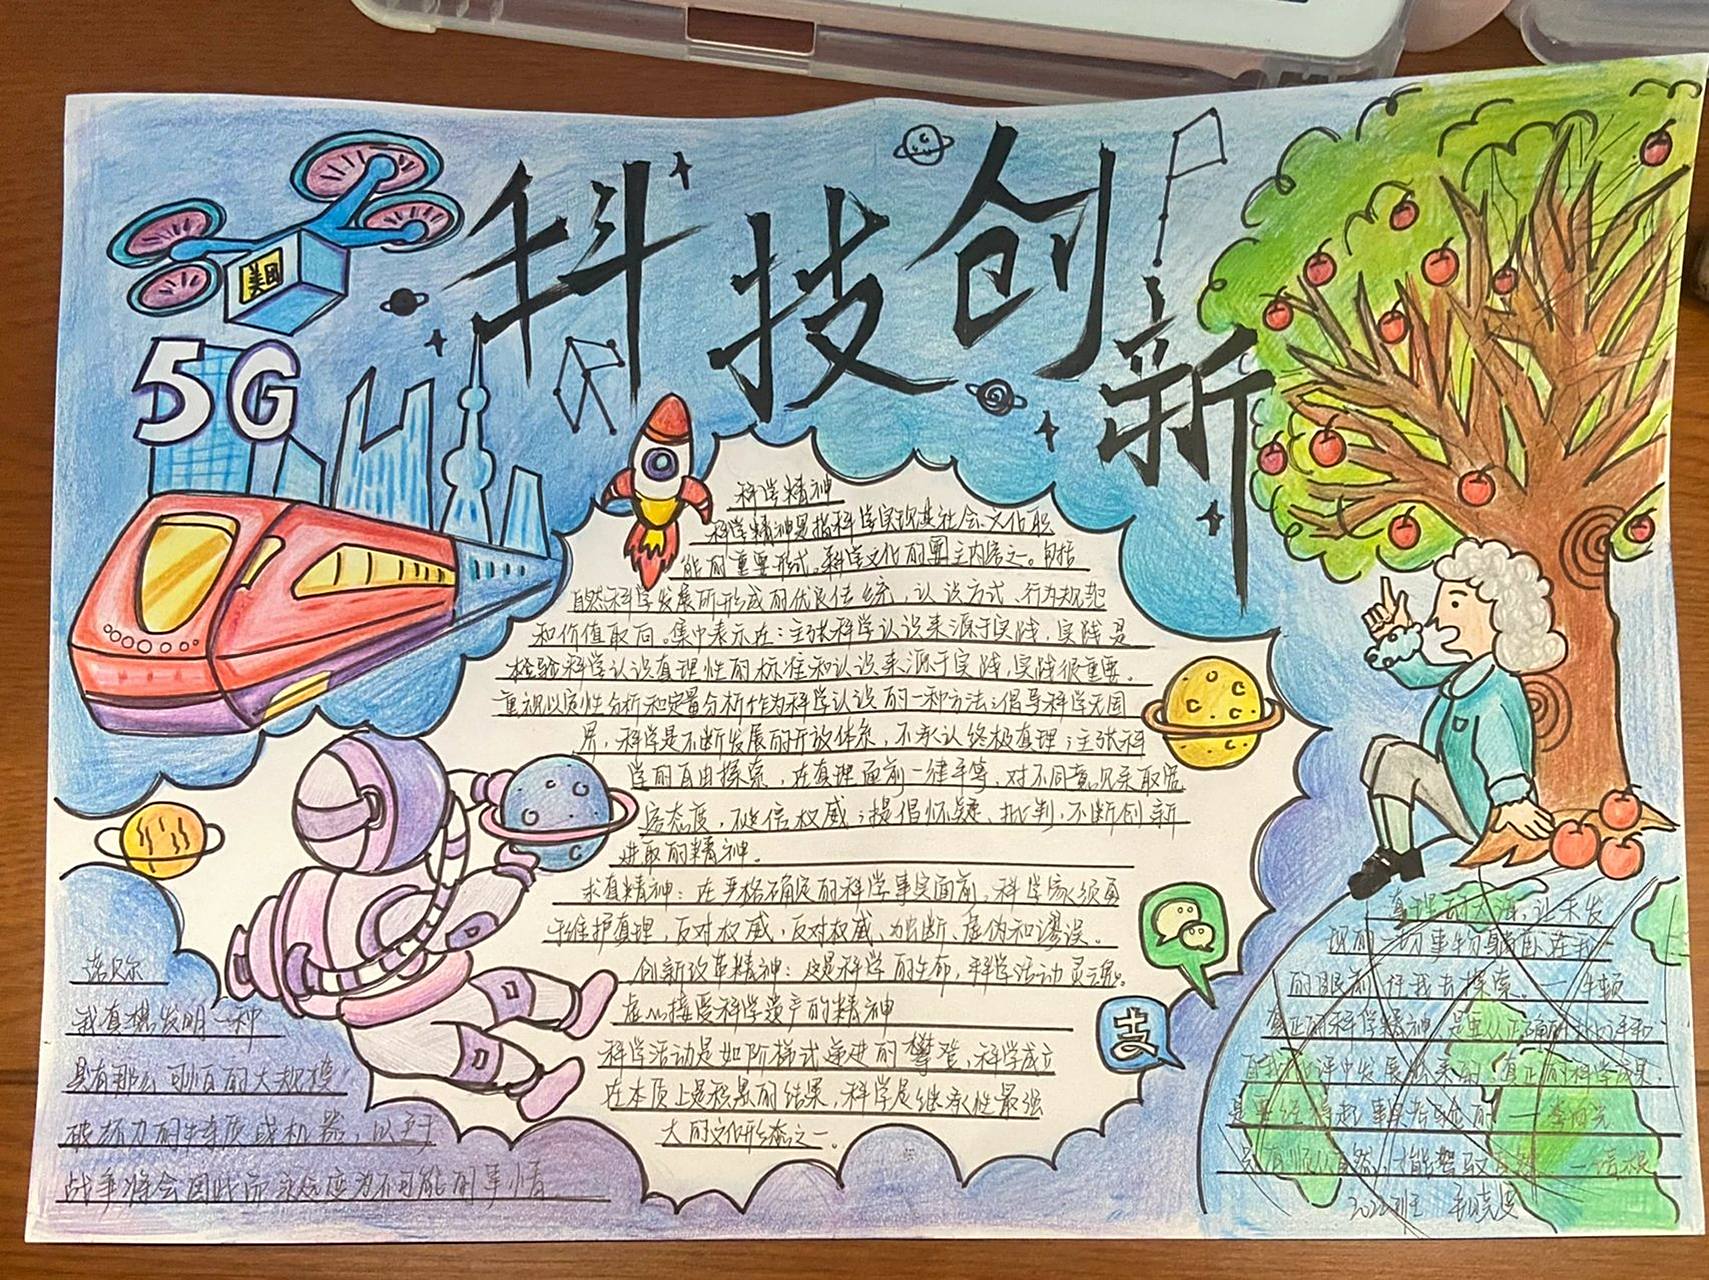 科技创新
美团
5G
科学精神
科学精神是指科学实现其社会文化职
能的重要形式。科学文化的主要内容之一。包括
自然科学发展所形成的优良传统，认识方式、行为规范
和价值取向。集中表示在：主张科学认识来源于实践，实践是
检验科学认识真理性的标准和认识来源于实践，实践很重要。
重视以定性分析和定量分析作为科学认识的一种方法；倡导科学无国
界，科学是不断发展的开放体系，不承认终极真理；主张科
学的自由探索，在真理面前一律平等，对不同意见采取宽
容态度，不迷信权威；提倡怀疑、批判，不断创新
进取的精神。
求真精神：在严格确定的科学事实面前，科学家须勇
于维护真理，反对权威，反对权威、独断、虚伪和谬误。
创新改革精神：这是科学的生命，科学活动灵魂。
虚心接受科学遗产的精神
科学活动是如阶梯式递进的攀登，科学成立
在本质上是积累的结果，科学是继承性最强
大的文化形态之一。
支
诺贝尔
我真想发明一种
具有那么可怕的大规模
破坏力的特质或机器，以至于
战争将会因此而永远应为不可能的事情
真理的大海，让未发
现的一切事物躺卧在我
的眼前，任我去探索。一牛顿
真正的科学精神，是要从正确的批评和
自我批评中发展出来的。真正的科学成果，
是要经得起事实考验的 一李四光
只有顺从自然，才能驾驭自然 一培根